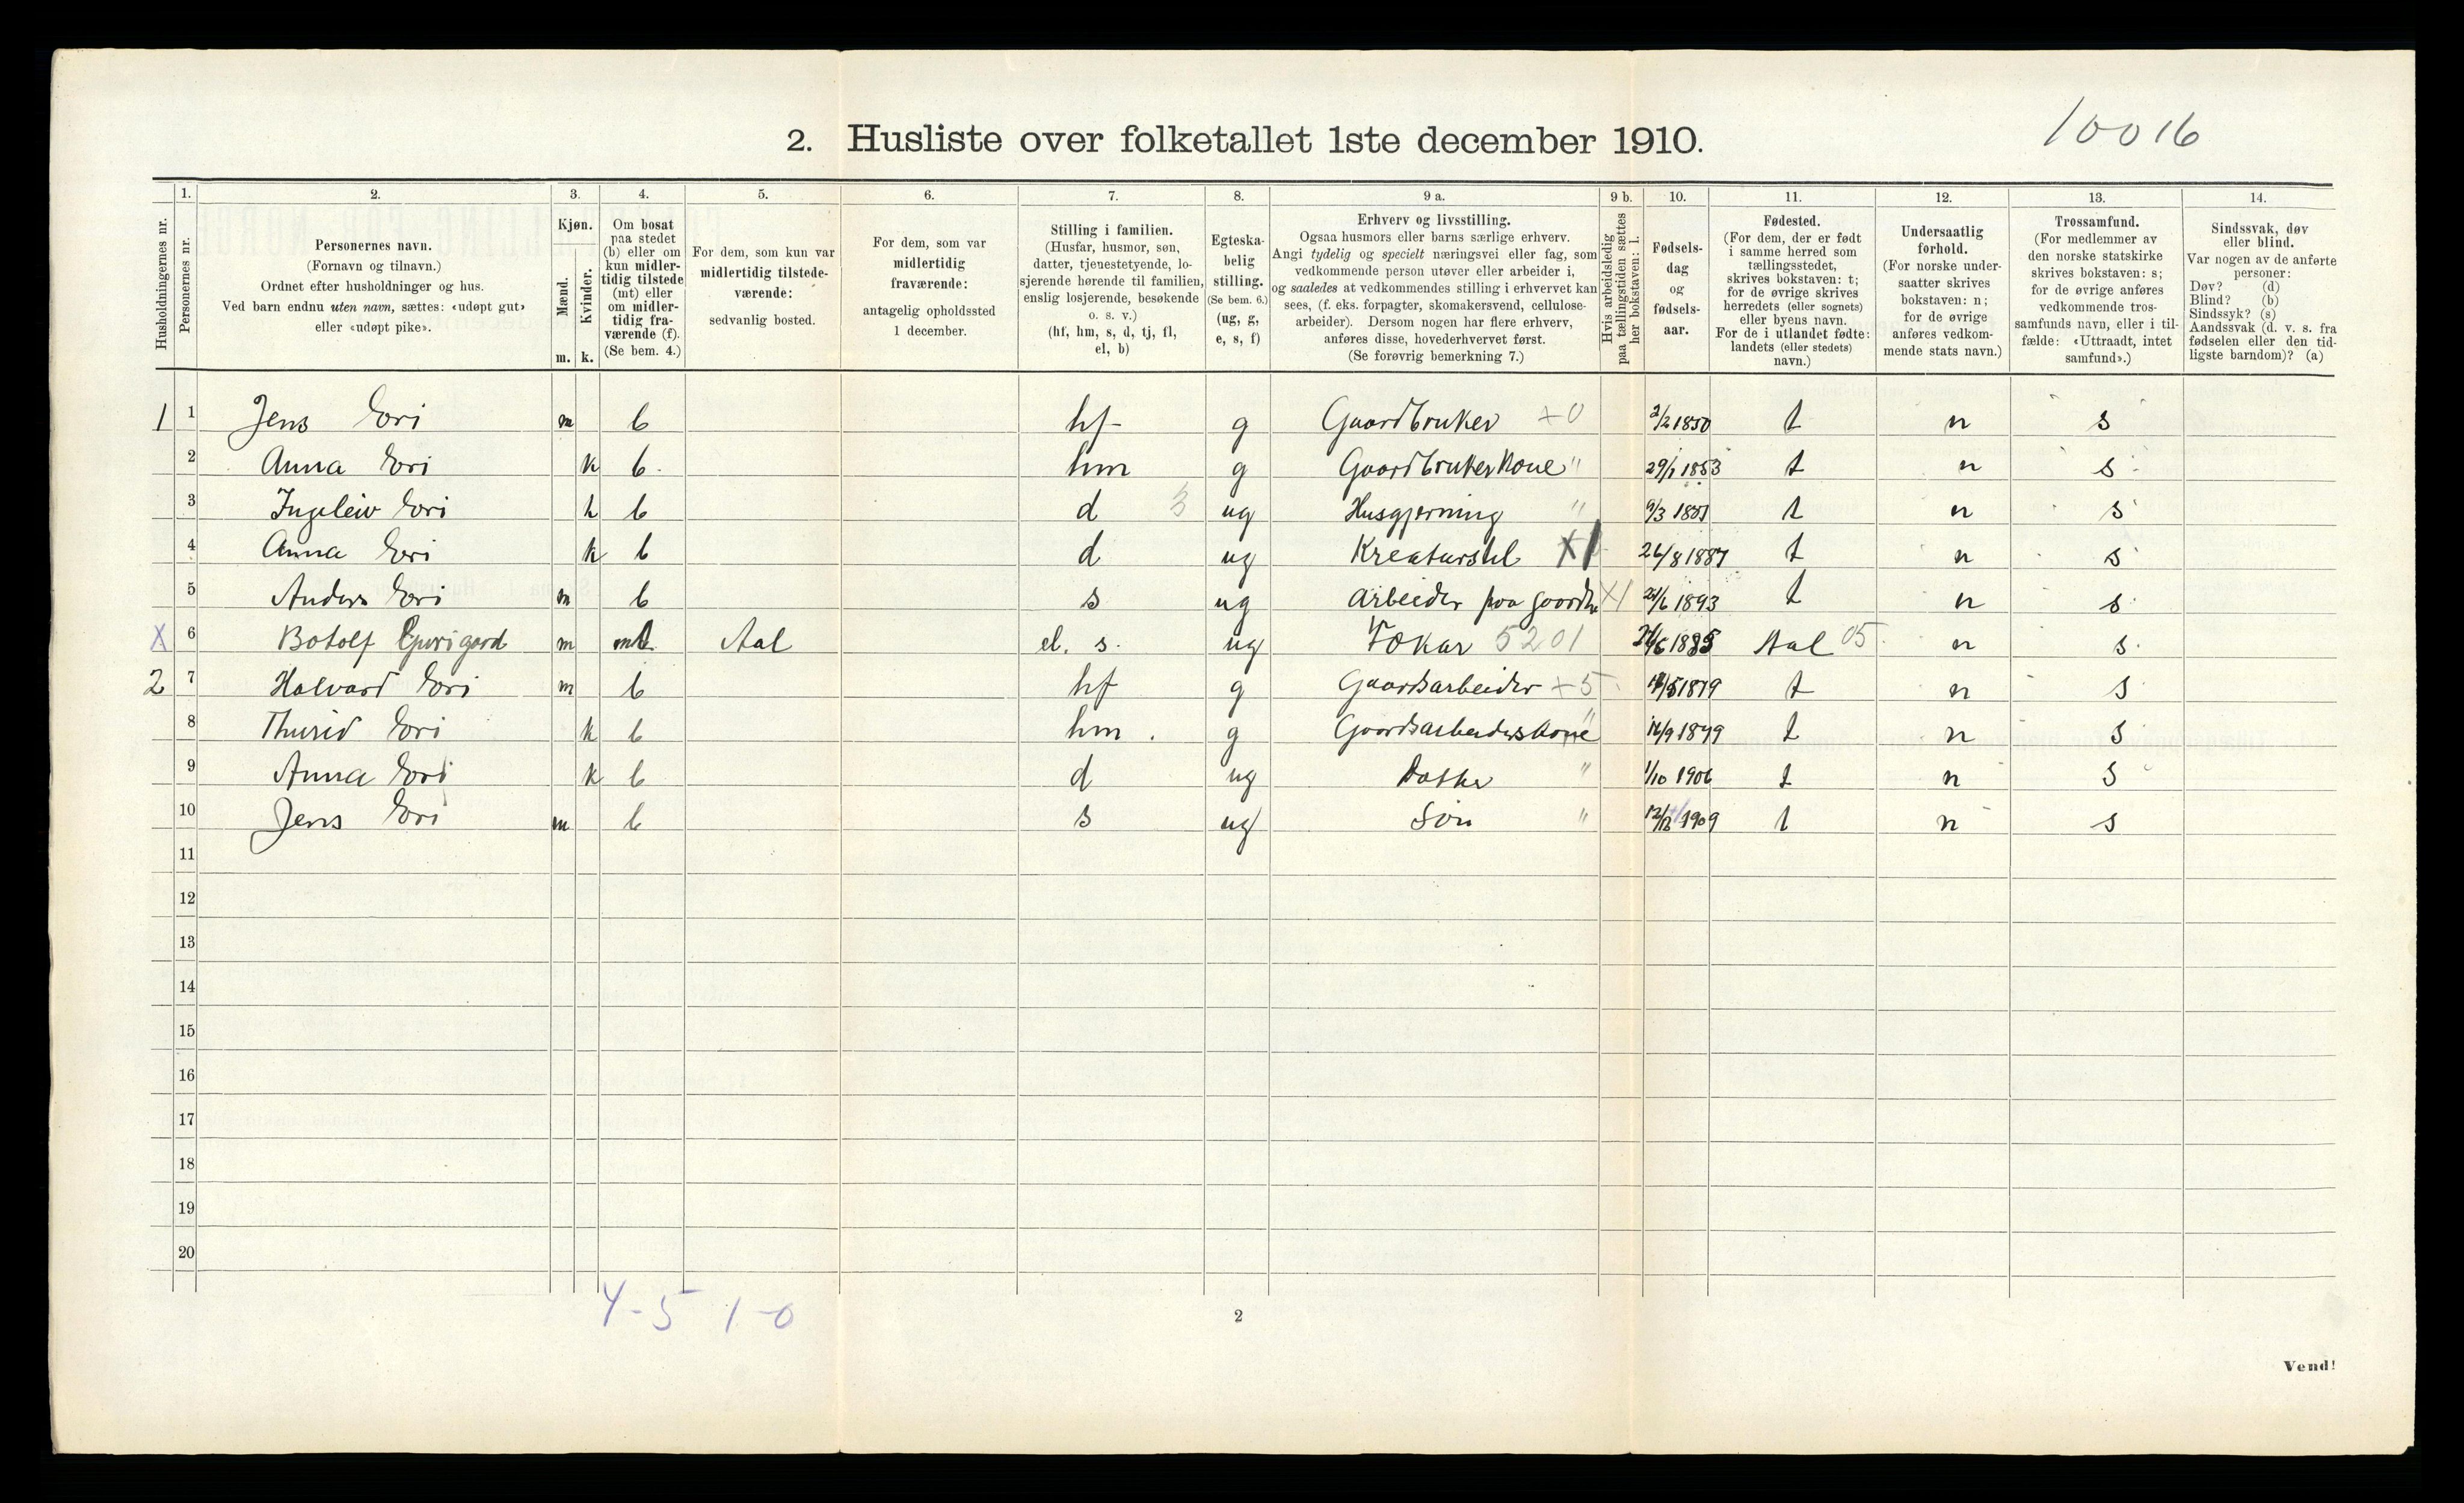 10016
2. Husliste over folketallet 1ste december 1910.
1. 2. 3. 4. 5. 6. 7. 8. 9 a. 9 b. 10. 11. 12. 13. 14.
Husholdningernes nr.
Personernes nr.
Personernes navn.
(Fornavn og tilnavn.)
Ordnet efter husholdninger og hus.
Ved barn endnu uten navn, sættes: «udøpt gut»
eller «udøpt pike».
Kjøn.
Mænd.
Kvinder.
m. k.
Om bosat
paa stedet
(b) eller om
kun midler-
tidig tilstede
(mt) eller
om midler-
tidig fra-
værende (f).
(Se bem. 4.)
For dem, som kun var
midlertidig tilstede-
værende:
sedvanlig bosted.
For dem, som var
midlertidig
fraværende:
antagelig opholdssted
1 december.
Stilling i familien.
(Husfar, husmor, søn,
datter, tjenestetyende, lo-
sjerende hørende til familien,
enslig losjerende, besøkende
o. s. v.)
(hf, hm, s, d, tj, fl,
el, b)
Egteska-
belig
stilling.
(Se bem. 6.)
(ug, g,
e, s, f)
Erhverv og livsstilling.
Ogsaa husmors eller barns særlige erhverv.
Angi tydelig og specielt næringsvei eller fag, som
vedkommende person utøver eller arbeider i,
og saaledes at vedkommendes stilling i erhvervet kan
sees, (f. eks. forpagter, skomakersvend, cellulose-
arbeider). Dersom nogen har flere erhverv,
anføres disse, hovederhvervet først.
(Se forøvrig bemerkning 7.)
Hvis arbeidsledig
paa tællingstiden sættes
her bokstaven: l.
Fødsels-
dag
og
fødsels-
aar.
Fødested.
(For dem, der er født
i samme herred som
tællingsstedet,
skrives bokstaven: t;
for de øvrige skrives
herredets (eller sognets)
eller byens navn.
For de i utlandet fødte:
landets (eller stedets)
navn.)
Undersaatlig
forhold.
(For norske under-
saatter skrives
bokstaven: n;
for de øvrige
anføres vedkom-
mende stats navn.)
Trossamfund.
(For medlemmer av
den norske statskirke
skrives bokstaven: s;
for de øvrige anføres
vedkommende tros-
samfunds navn, eller i til-
fælde: «Uttraadt, intet
samfund».)
Sindssvak, døv
eller blind.
Var nogen av de anførte
personer:
Døv? (d)
Blind? (b)
Sindssyk? (s)
Aandssvak (d. v. s. fra
fødselen eller den tid-
ligste barndom)? (a)
1 1 Jens Evri m b hf g Gaardbruker +0 2/2 1850 t n s
2 Anna Evri k b hm g Gaardbrukerkone " 29/1 1853 t n s
3 Ingeleiv Evri k b d 3 ug Husgjerning " 9/3 t n s
4 Anna Evri k b d ug Kreaturstel X1 26/8 1887 t n s
5 Anders Evri m b s ug Arbeider paa X1 1893 t n s
X 6 Botolf m mt Aal el. s. ug 5201 Aal 05 n s
2 7 Halvard Evri m b hf g Gaardsarbeider +5 1879 t n s
8 Thurid Evri k b hm. g Gaardsarbeiderskone " t n s
9 Anna Evri k b d ug Datter " 1/10 1906 t n s
10 Jens Evri m b s ug Søn " 1909 t n s
11
12
13
14
15
16
17
18
19
20
4-5 1-0
2
Vend!